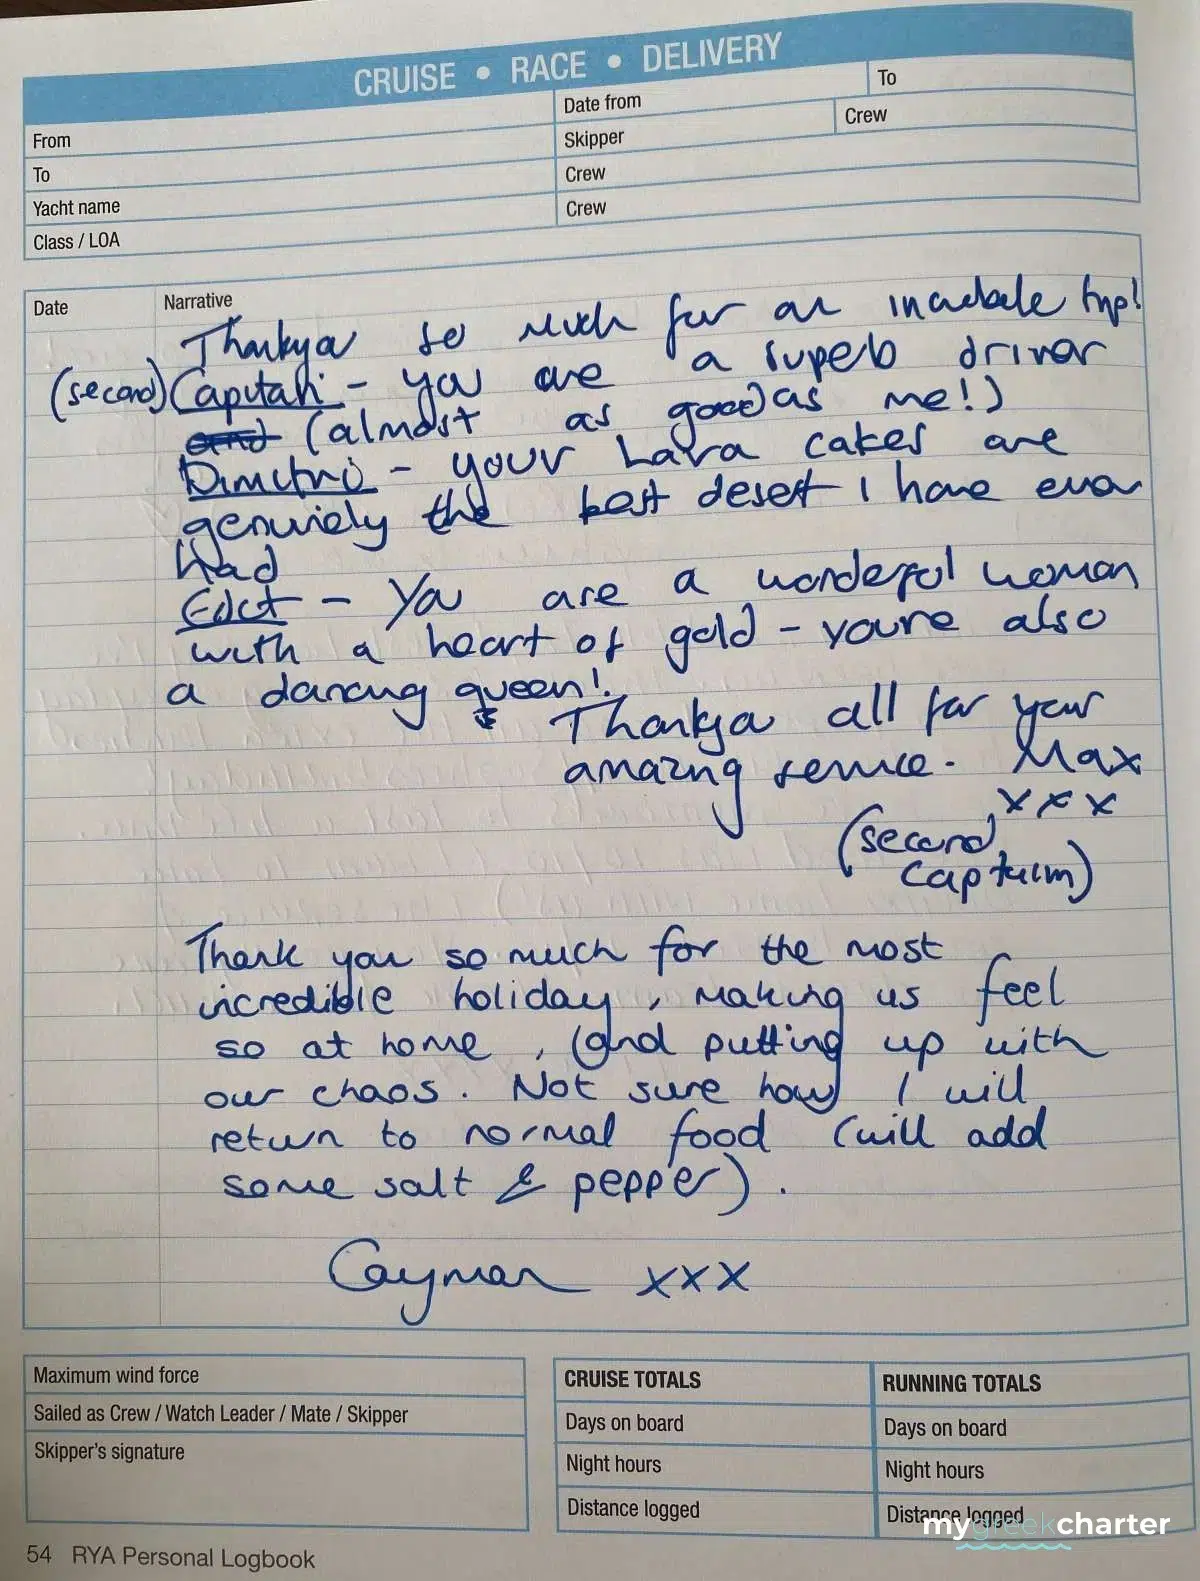 CRUISE • RACE • DELIVERY
From
Date from
To
To
Skipper
Crew
Yacht name
Crew
Class / LOA
Crew
Date
Narrative
Thankyou so much for an incredible trip!
(second) Capitan - you are a superb driver
(almost as good as me!)
Dimitri - your Lava cakes are
genuiely the best desert I have ever
had
- You are a wonderful woman
with a heart of gold - youre also
a dancing queen!
Thankyou all for your
amazing service. Max
xxx
(second
captain)
Thank you so much for the most
incredible holiday, making us feel
so at home, (and putting up with
our chaos. Not sure how I will
return to normal food (will add
some salt & pepper).
Cayman xxx
Maximum wind force
Sailed as Crew / Watch Leader / Mate / Skipper
Skipper's signature
CRUISE TOTALS
RUNNING TOTALS
Days on board
Days on board
Night hours
Night hours
Distance logged
Distance logged
mygreekcharter
54 RYA Personal Logbook